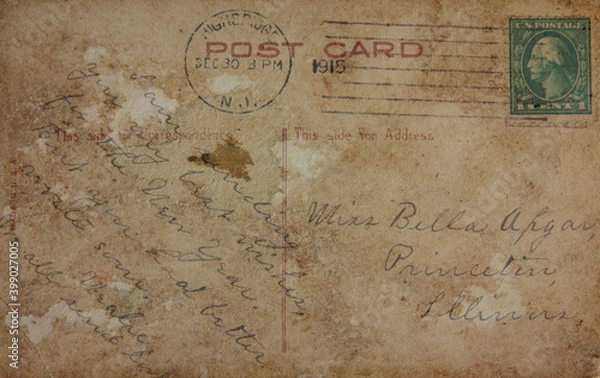 HIGHBRIDGE
DEC 30 3 PM
N.J.
1915
POST CARD
U.S. POSTAGE
1 CENTS 1
This side for Correspondence
This side for Address
I am sending
you my best wishes
for the New Year.
better
write soon.
all
Miss Bella Apgar,
Princeton,
Illinois.
Adobe Stock
#399027005